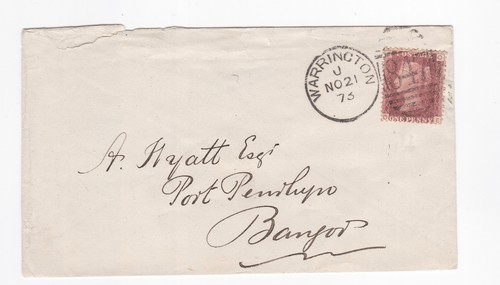 WARRINGTON
U
NO 21
73
ONE PENNY
A. Wyatt Esqr
Port Penrhyn
Bangor